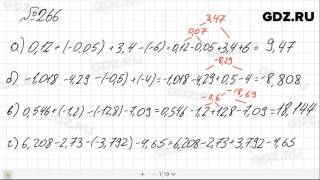 №266
GDZ.RU
3,47
0,07
а) 0,12+(-0,05)+3,4-(-6)=0,12-0,05+3,4+6=9,47
-8,29
б) -1,018-4,29-(-0,5)+(-4)=-1,018-4,29+0,5-4=-8,808
-1,6 -18,69
в) 0,546+(-1,2)-(-12,8)-1,09=0,546-1,2+12,8-1,09=18,144
г) 6,208-2,73-(-3,792)-4,65=6,208-2,73+3,792-4,65